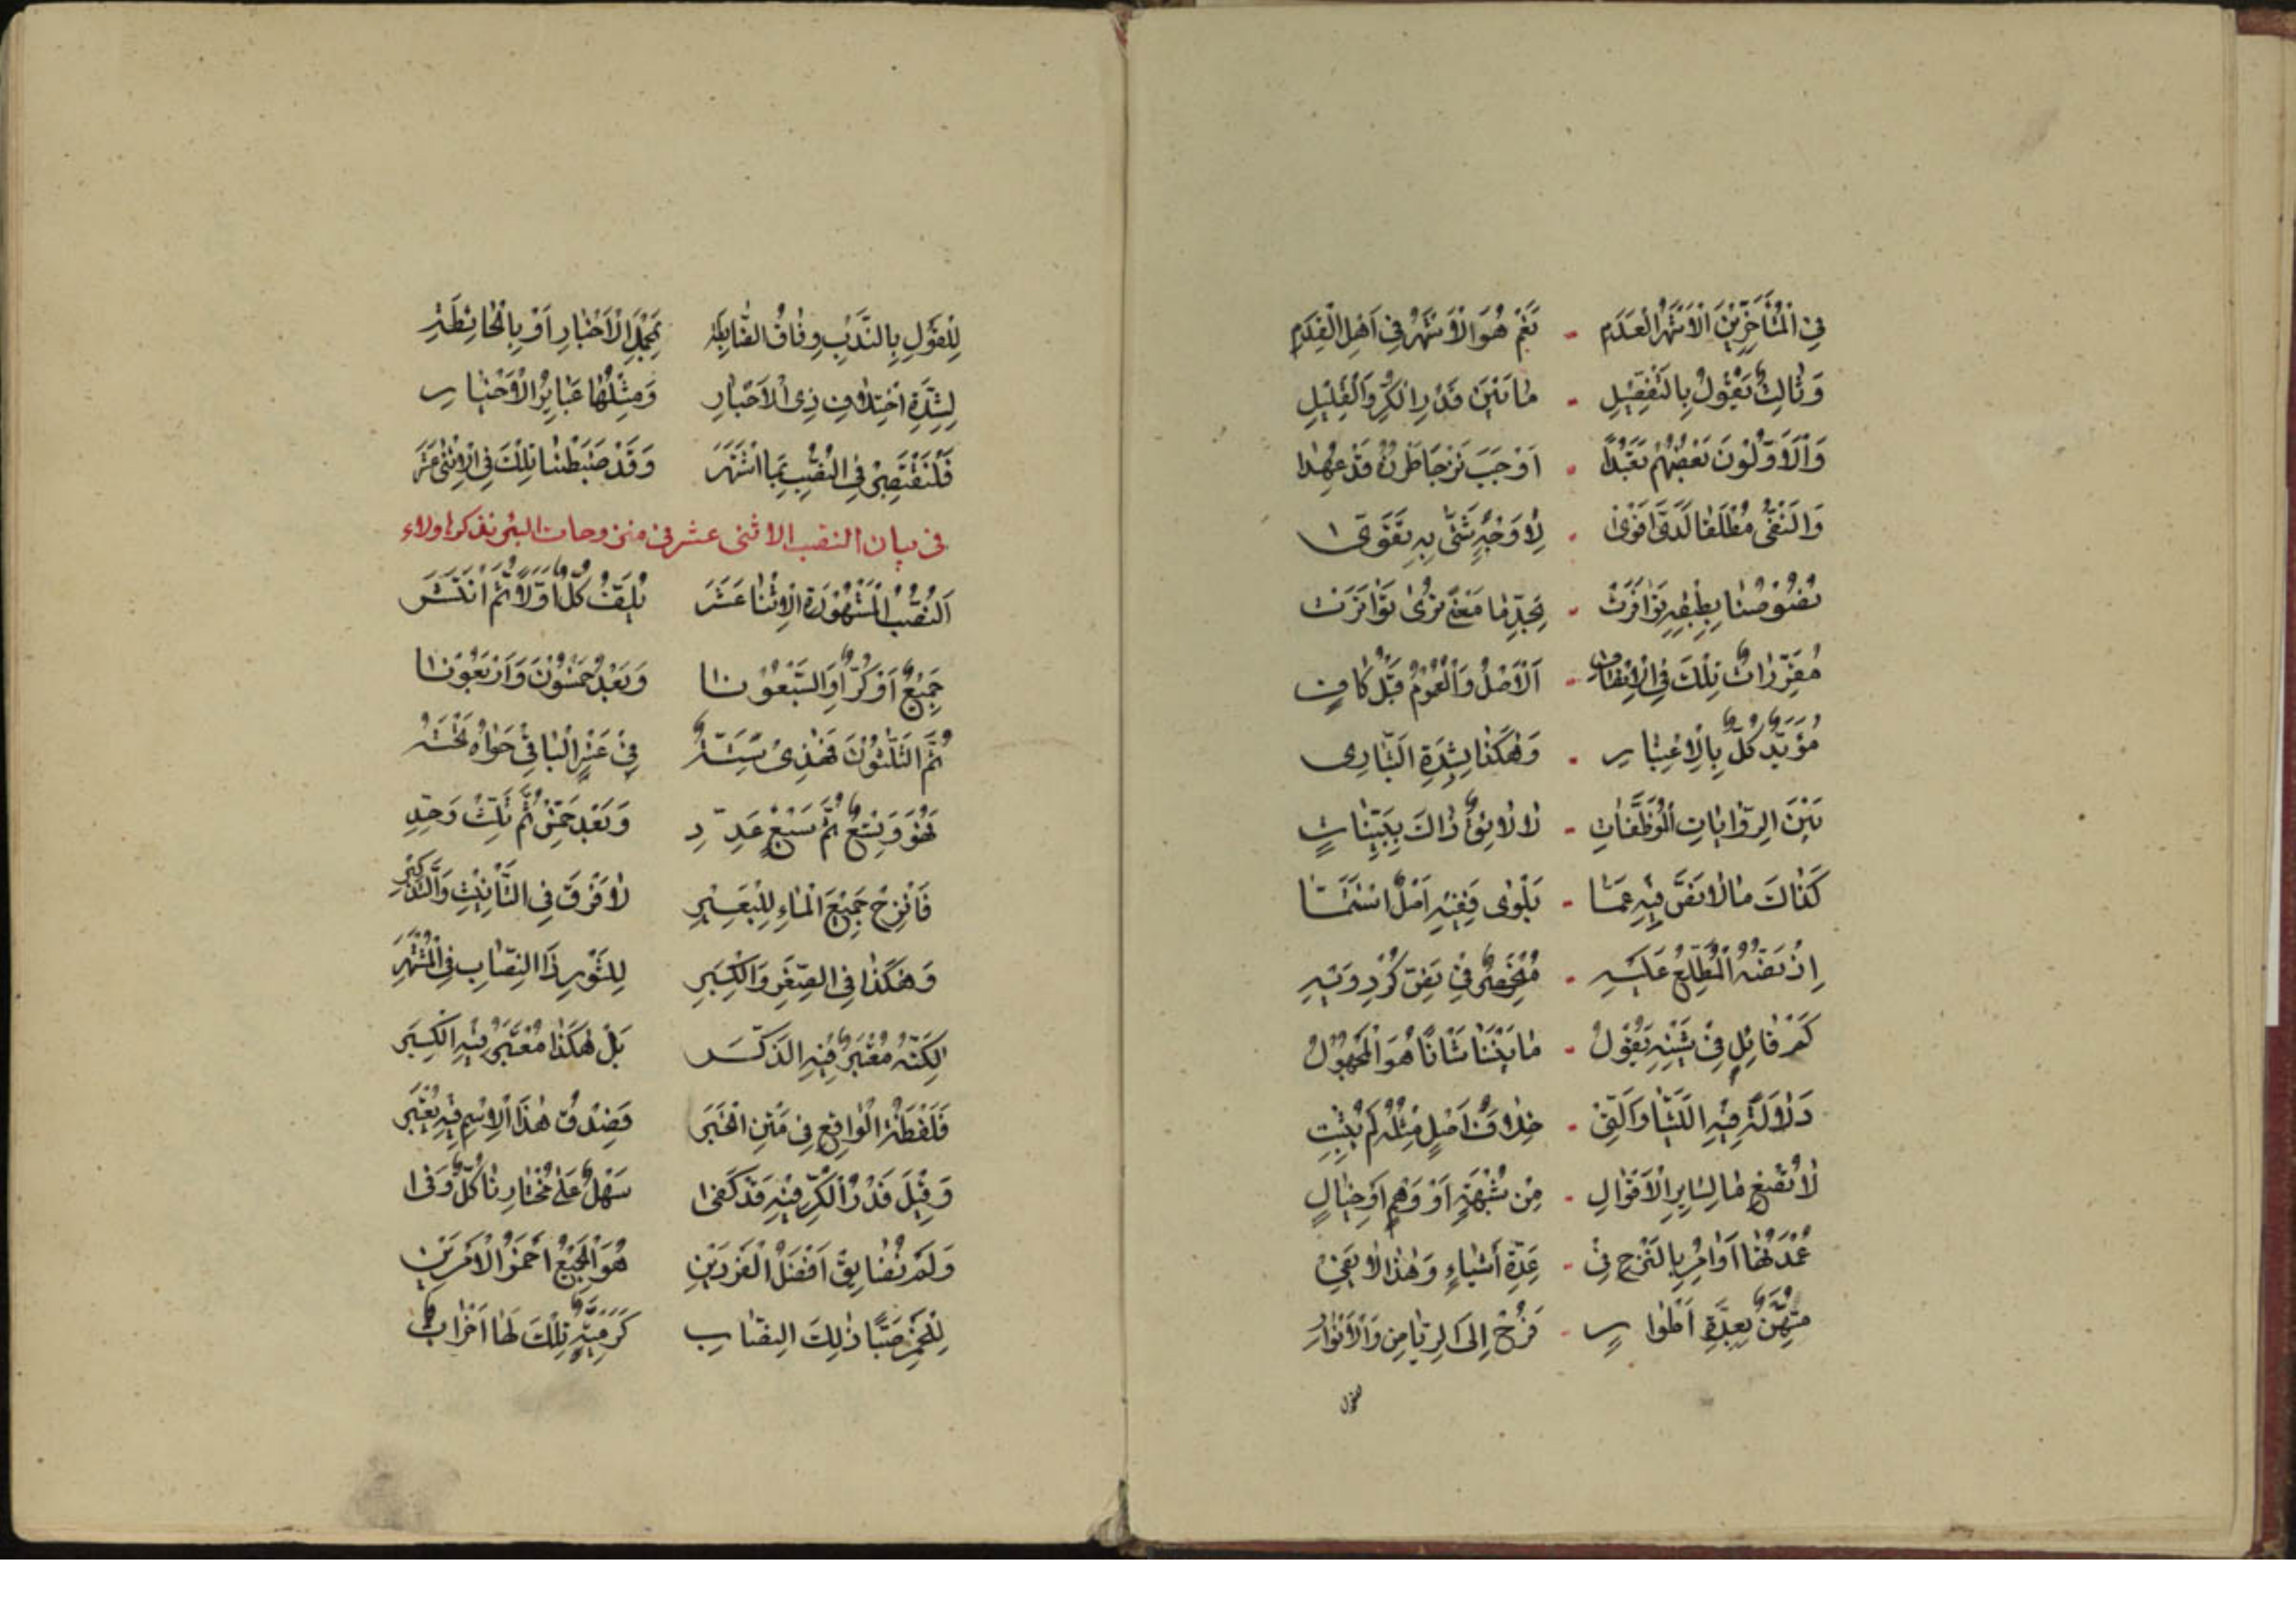 فِي الْمُتَأَخِّرِينَ الْأَشْهَرُ الْعَدَم - نَعَمْ هُوَ الْأَشْهَرُ فِي أَهْلِ الْقِدَمِ
وَثَالِثٌ يَقُولُ بِالتَّفْصِيلِ - مَا بَيْنَ قَدْرِ الْكُرِّ وَالْقَلِيلِ
وَالْأَوَّلُونَ بَعْضُهُمْ تَعَبُّدًا - أَوْجَبَ نَزْحًا قَدْ عُهِدَا
وَالنَّفْيُ مُطْلَقًا لَدَيَّ أَقْوَى - لِأَوْجُهٍ شَتَّى بِهِ تَقَوَّى
نُصُوصُنَا بِطِبْقِهِ تَوَافَرَتْ - بِحَدِّ مَا مَعْنًى نَرَى تَوَاتَرَتْ
تِلْكَ فِي - الْأَصْلُ وَالْعُمُومُ قُلْ كَافٍ
مُؤَيِّدٌ كُلٌّ بِالِاعْتِبَارِ - وَهٰكَذَا لِشِدَّةِ
بَيْنَ الرِّوَايَاتِ الْمُوَظِّفَاتِ - ذَاكَ بِبَيِّنَاتٍ
كَذَاكَ مَا لَا نَصَّ فِيهِ عَمَّا - بَلْوَى فَفِيهِ
إِذْ نَصُّهُ الْمُطَّلَعُ عَلَيْهِ - مُنْحَصِرٌ فِي نَصِّ كُرْدِوَيْهِ
كَمْ قَائِلٍ فِي شَيْنِهِ يَقُولُ - مَا بَيْنَنَا هُوَ الْمَجْهُولُ
دَلَالَةٌ فِيهِ اللَّتَيَّا وَالَّتِي - خِلَافُ أَصْلٍ مِثْلُهُ لَمْ يُثْبِتِ
لَا تُصْغِ مَا لِسَايِرِ الْأَقْوَالِ - مِنْ شُبْهَةٍ أَوْ وَهْمٍ أَوْ خَيَالِ
عُمْدَتُهَا أَوَامِرٌ بِالنَّزْحِ فِي - عِدَّةِ أَشْيَاءٍ وَهٰذَا لَا يَفِي
بِعِدَّةِ أَطْوَارٍ - فَرُحْ إِلَى الرِّيَاضِ وَالْأَنْوَارِ
لِلْقَوْلِ بِالنَّدْبِ وِفَاقُ الضَّابِطَة بِحَمْلِ الْأَخْبَارِ أَوْ بِالْحَائِطَةِ
لِشِدَّةِ اخْتِلَافِ ذِي الْأَخْبَارِ وَمِثْلُهَا عَبَائِرُ الْأَخْيَارِ
فَلْنَقْتَصِرْ فِي النُّصُبِ بِمَا اشْتَهَرَ وَقَدْ ضَبَطْنَا تِلْكَ فِي الِاثْنَيْ عَشَرَ
فى بيان النصب الاثنى عشر فى منزوحات البئر نذكرها ولاء
اَلنُّصُبُ الْمَشْهُورَةُ الِاثْنَا عَشَرَ كُلٌّ أَوَّلًا ثُمَّ انْتَشَرَ
جَمِيعٌ أَوْ كُرٌّ أَوِ السَّبْعُونَا وَبَعْدُ خَمْسُونَ وَأَرْبَعُونَا
ثُمَّ الثَّلَثُونَ فَهٰذِي سِتَّةٌ فِي عَشْرٍ الْبَاقِي حَوَاهُ تَحْتَهُ
فَهُوَ وَتِسْعٌ ثُمَّ سَبْعٌ عَدِّدِ وَبَعْدُ خَمْسٌ ثُمَّ ثَلِّثْ وَحِّدِ
فَانْزِحْ جَمِيعَ الْمَاءِ لِلْبَعِيرِ لَا فَرْقَ فِي التَّأْنِيثِ وَالتَّذْكِيرِ
وَهٰكَذَا فِي الصِّغَرِ وَالْكِبَرِ لِلثَّوْرِ ذَا النِّصَابُ فِي الْمُشْتَهِرِ
لٰكِنَّهُ مُعْتَبَرٌ فِيهِ الذَّكَر بَلْ هٰكَذَا مُعْتَبَرٌ فِيهِ الْكِبَر
فَلَفْظَةُ الْوَاقِعِ فِي مَتْنِ الْخَبَرِ فَصِدْقُ هٰذَا الِاسْمِ فِيهِ يُعْتَبَر
وَقِيلَ قَدْرُ الْكُرِّ فِيهِ قَدْ كَفَى سَهْلٌ عَلَى مُخْتَارِنَا كُلٌّ وَفَى
وَلَمْ نُضَايِقْ أَفْضَلَ الْفَرْدَيْنِ هُوَ الْجَمِيعُ أَحْمَزُ الْأَمْرَيْنِ
لِلْخَمْرِ صَبًّا ذٰلِكَ النِّصَابُ كَرَمْيَةٍ تِلْكَ لَهَا أَضْرَابٌ